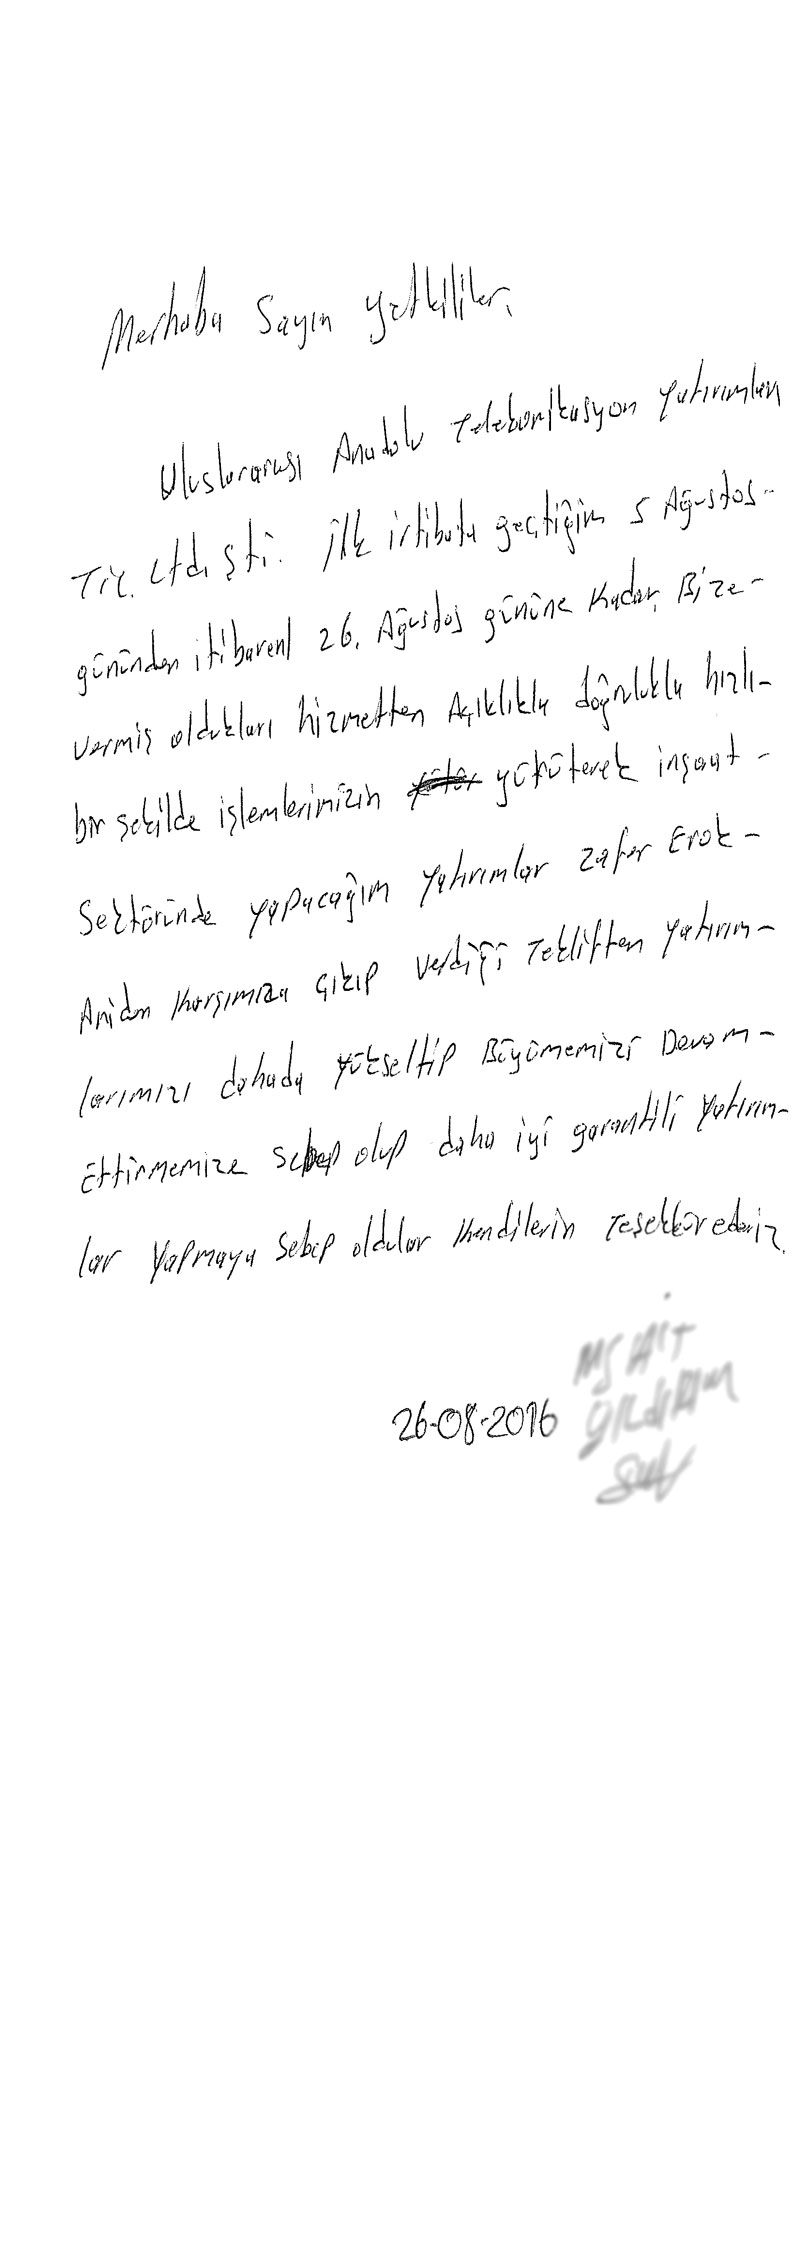 Merhaba Sayın yetkililer,
Uluslararası Anadolu Telekonikasyon Yatırımları
Tic. Ltd. Şti. İlk irtibata geçtiğim 5 Ağustos-
gününden itibarenl 26. Ağustos gününe Kadar, Bize-
vermiş oldukları hizmetten Açıklıkla doğrulukla hızlı-
bir şekilde işlemlerimizin yürüterek inşaat -
Sektöründe yapacağım yatırımlar Zafer Erok -
Aniden Karşımıza çıkıp Verdiği Tekliften yatırım-
larımızı dahada yükseltip Büyümemizi Devam -
Ettirmemize Sebep olup daha iyi garantili yatırım-
lar Yapmaya Sebep oldular Kendilerin Teşekkür ederiz.
26-08-2016